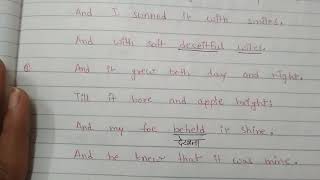 And I sunned it with smiles.
And with soft deseitful wiles.
And it grew both day and night.
Till it bore and apple bright.
And my foe beheld it shine.
देखना
And he knew that it was mine.